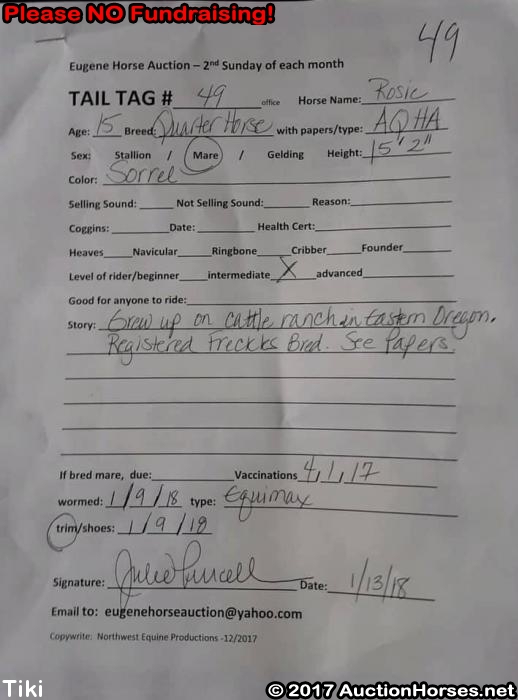 Please NO Fundraising!
49
Eugene Horse Auction – 2nd Sunday of each month
TAIL TAG # 49 office Horse Name: Rosie
Age: 15 Breed: Quarter Horse with papers/type: AQHA
Sex: Stallion / Mare / Gelding Height: 15'2"
Color: Sorrel
Selling Sound: Not Selling Sound: Reason:
Coggins: Date: Health Cert:
Heaves Navicular Ringbone Cribber Founder
Level of rider/beginner intermediate X advanced
Good for anyone to ride:
Story: Grew up on cattle ranch in Eastern Oregon.
Registered Freckles Bred. See Papers.
If bred mare, due: Vaccinations 4/1/17
wormed: 1/9/18 type: Equimax
trim/shoes: 1/9/18
Signature: Julie Purcell Date: 1/13/18
Email to: eugenehorseauction@yahoo.com
Copywrite: Northwest Equine Productions -12/2017
Tiki
© 2017 AuctionHorses.net